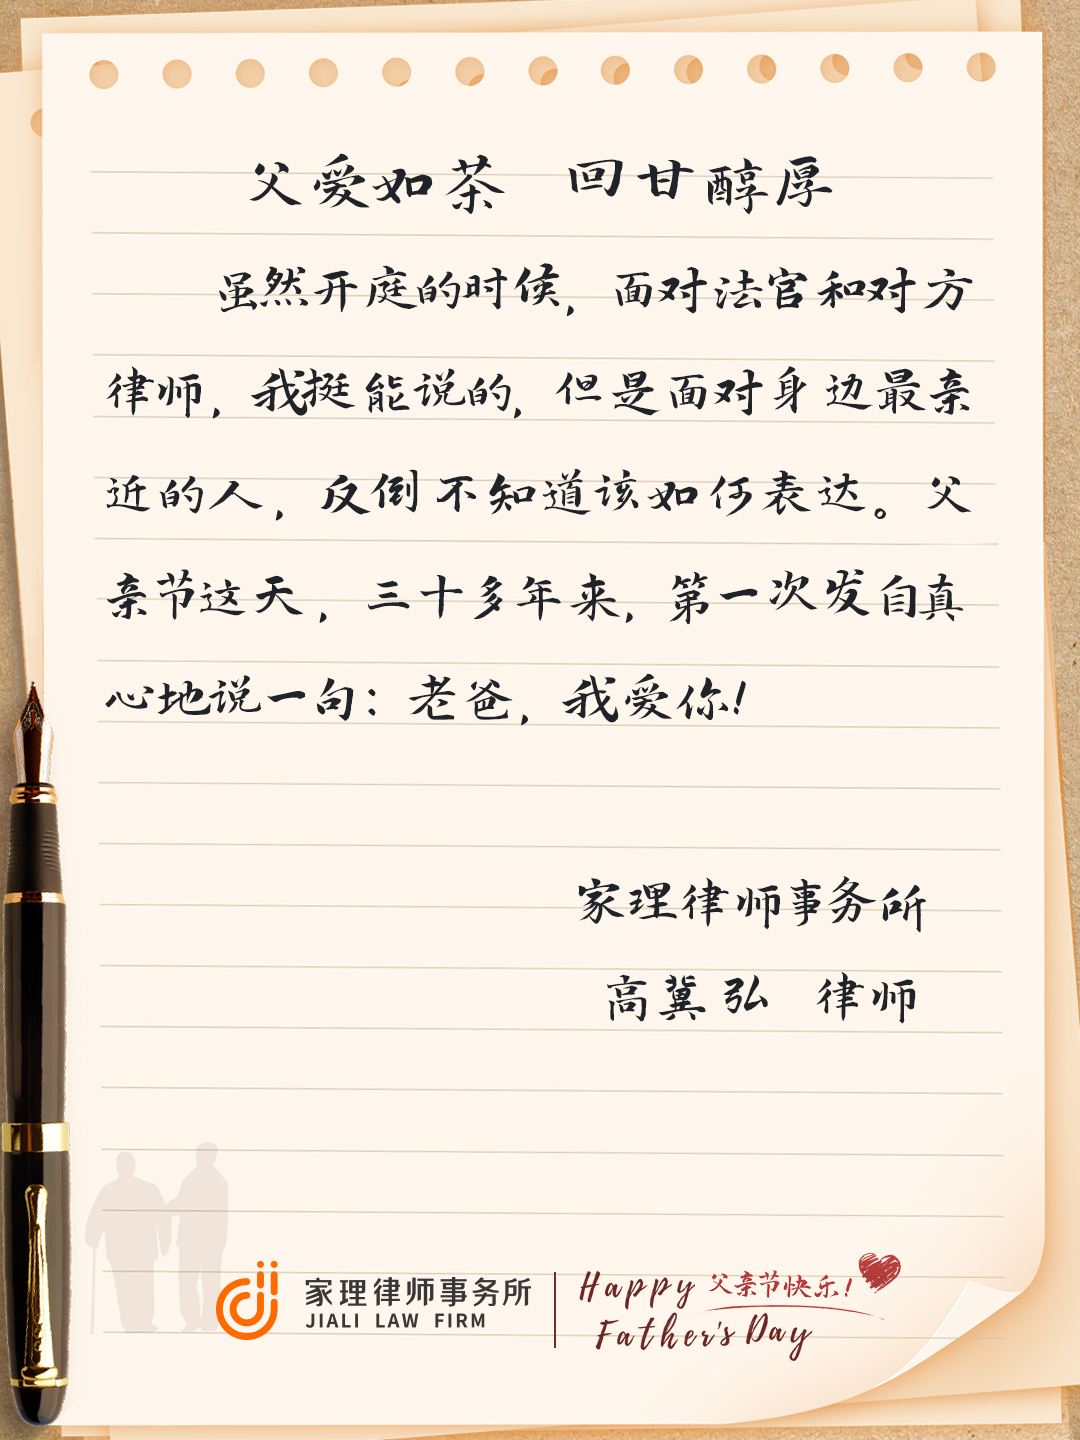 父爱如茶 回甘醇厚
虽然开庭的时侯，面对法官和对方
律师，我挺能说的，但是面对身边最亲
近的人，反倒不知道该如何表达。父
亲节这天，三十多年来，第一次发自真
心地说一句：老爸，我爱你！
家理律师事务所
高冀弘 律师
家理律师事务所
JIALI LAW FIRM
Happy 父亲节快乐！
Father's Day